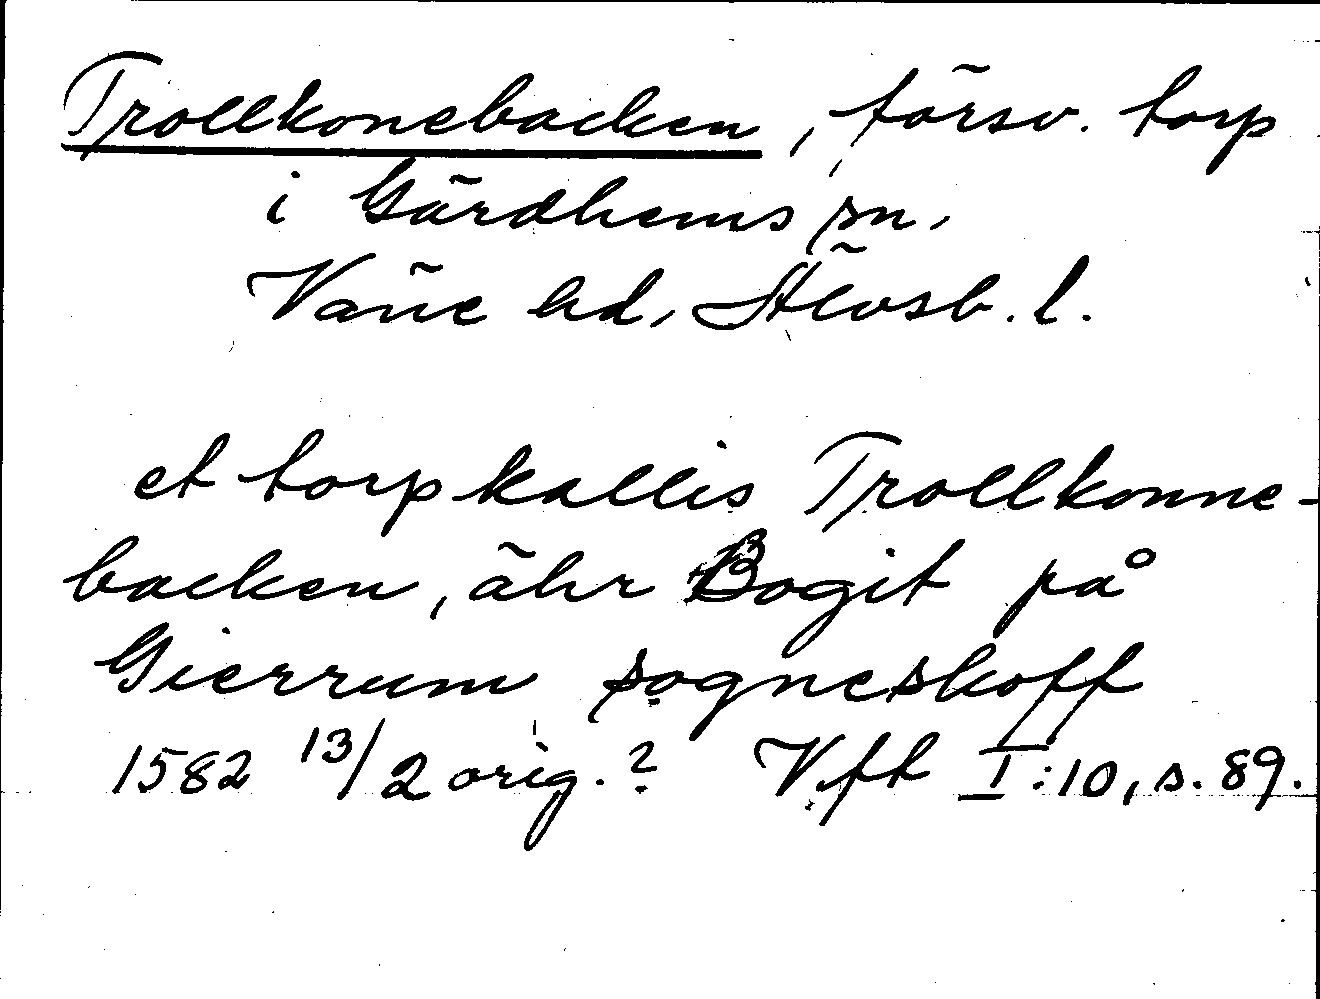 Trollkonebacken, försv. torp
i Gärdhems sn,
Väne hd, Älvsb. l.
et torp kallis Trollkonne-
backen, ähr Bogit på
Gierrum sogneskoff
1582 13/2 orig.? Vft I:10, s. 89.